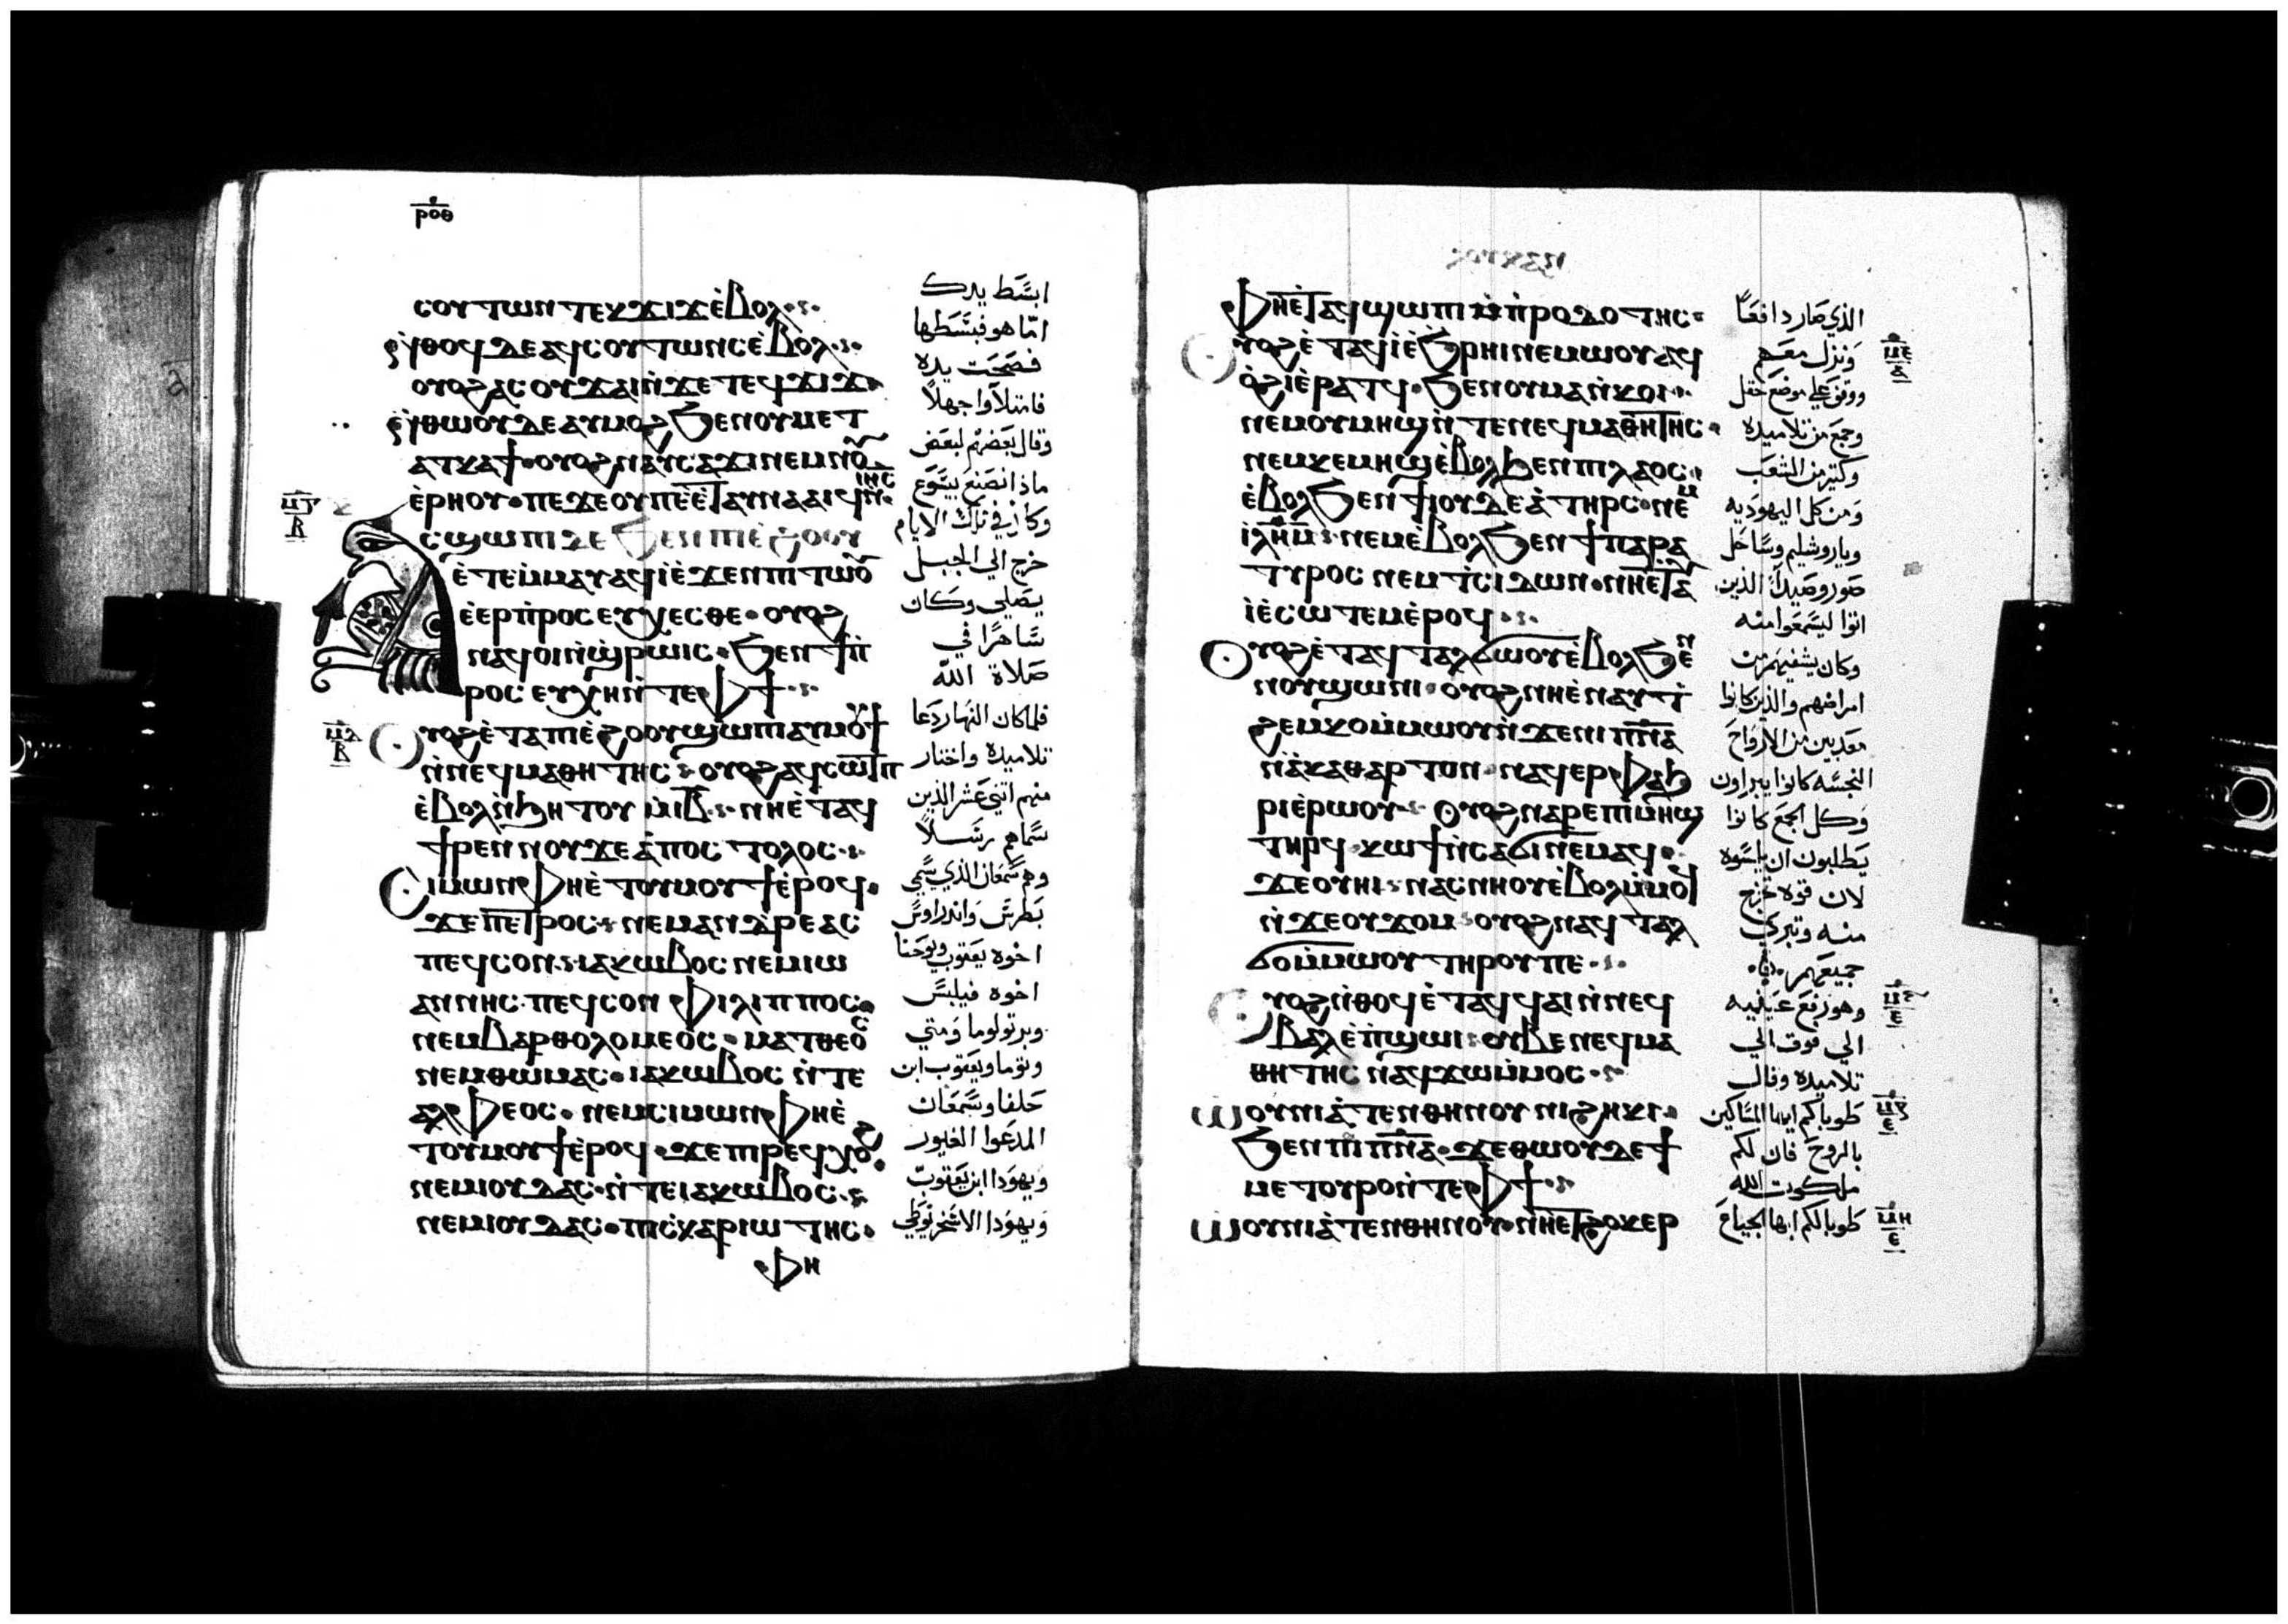 ⲣⲟⲑ
ⲥⲟⲩⲧⲱⲛ ⲧⲉⲕϫⲓϫ ⲉ̀ⲃⲟⲗ
ⲛ̀ⲑⲟϥ ⲇⲉ ⲁϥⲥⲟⲩⲧⲱⲛⲥ ⲉ̀ⲃⲟⲗ
ⲟⲩⲟϩ ⲁⲥⲟⲩϫⲁⲓ ⲛ̀ϫⲉ ⲧⲉϥϫⲓϫ
ⲛ̀ⲑⲱⲟⲩ ⲇⲉ ⲁⲩⲙⲟϩ ϧⲉⲛ ⲟⲩⲙⲉⲧ
ⲁⲧⲕⲁϯ ⲟⲩⲟϩ ⲛⲁⲩⲥⲁϫⲓ ⲛⲉⲙ ⲛⲟⲩ
ⲉ̀ⲣⲏⲟⲩ ⲡⲉ ϫⲉ ⲟⲩ ⲡⲉⲉ̀ⲧⲁⲩⲛⲁⲁⲓϥ ⲛ̀ⲓⲏⲥ
ⲁⲥϣⲱⲡⲓ ⲇⲉ ϧⲉⲛ ⲡⲓⲉ̀ϩⲟⲟⲩ
ⲉ̀ⲧⲉⲙ̀ⲙⲁⲩ ⲁϥⲓ̀ ⲉ̀ϫⲉⲛ ⲡⲓⲧⲱⲟⲩ
ⲉ̀ⲉⲣⲡ̀ⲣⲟⲥⲉⲩⲭⲉⲥⲑⲉ ⲟⲩⲟϩ
ⲛⲁϥⲟⲓ ⲛ̀ϣⲣⲱⲓⲥ ϧⲉⲛ ϯⲡ̀
ⲣⲟⲥⲉⲩⲭⲏ ⲛ̀ⲧⲉ ⲫϯ
ⲟⲩⲟϩ ⲉ̀ⲧⲁ ⲡⲓⲉ̀ϩⲟⲟⲩ ϣⲱⲡⲓ ⲁϥⲙⲟⲩϯ
ⲛ̀ⲛⲉϥⲙⲁⲑⲏⲧⲏⲥ ⲟⲩⲟϩ ⲁϥⲥⲱⲧⲡ
ⲉ̀ⲃⲟⲗ ⲛ̀ϧⲏⲧⲟⲩ ⲙ̀ⲓ̅ⲃ̅ ⲛⲏⲉ̀ⲧⲁϥ
ϯⲣⲉⲛ ⲛⲟⲩ ϫⲉ ⲁ̀ⲡⲟⲥⲧⲟⲗⲟⲥ
ⲥⲓⲙⲱⲛ ⲫⲏⲉ̀ⲧⲟⲩⲙⲟⲩϯ ⲉ̀ⲣⲟϥ
ϫⲉ ⲡⲉⲧⲣⲟⲥ ⲛⲉⲙ ⲁⲛⲇⲣⲉⲁⲥ
ⲡⲉϥⲥⲟⲛ ⲓⲁⲕⲱⲃⲟⲥ ⲛⲉⲙ ⲓⲱ
ⲁⲛⲛⲏⲥ ⲡⲉϥⲥⲟⲛ ⲫⲓⲗⲓⲡⲡⲟⲥ
ⲛⲉⲙ ⲃⲁⲣⲑⲟⲗⲟⲙⲉⲟⲥ ⲙⲁⲧⲑⲉⲟⲥ
ⲛⲉⲙ ⲑⲱⲙⲁⲥ ⲓⲁⲕⲱⲃⲟⲥ ⲛ̀ⲧⲉ
ⲁⲗⲫⲉⲟⲥ ⲛⲉⲙ ⲥⲓⲙⲱⲛ ⲫⲏⲉ̀
ⲧⲟⲩⲙⲟⲩϯ ⲉ̀ⲣⲟϥ ϫⲉ ⲡⲓⲣⲉϥⲭⲟϩ
ⲛⲉⲙ ⲓⲟⲩⲇⲁⲥ ⲛ̀ⲧⲉ ⲓⲁⲕⲱⲃⲟⲥ
ⲛⲉⲙ ⲓⲟⲩⲇⲁⲥ ⲡⲓⲥⲕⲁⲣⲓⲱⲧⲏⲥ
ⲫⲏ
ابسط يدك
اما هو فبسطها
فصحت يده
فامتلاوا جهلا
وقال بعضهم لبعض
ماذا نصنع بيسوع
وكان في تلك الايام
خرج الي الجبل
يصلي وكان
ساهرا في
صلاة الله
فلما كان النهار دعا
تلاميذه واختار
منهم اثني عشر الذين
سماهم رسلا
وهم سمعان الذي سمي
بطرس واندراوس
اخوه يعقوب ويوحنا
اخوه فيلبس
وبرتولوما ومتي
وتوما ويعقوب ابن
حلفا وسمعان
المدعوا الغيور
ويهودا ابن يعقوب
ويهودا الاسخريوطي
ⲙⲅ
ⲃ
ⲙⲇ
ⲃ
ⲫⲏⲉ̀ⲧⲁϥϣⲱⲡⲓ ⲙ̀ⲡ̀ⲣⲟⲇⲟⲧⲏⲥ
ⲟⲩⲟϩ ⲉ̀ⲧⲁϥⲓ̀ ⲉ̀ϧⲣⲏⲓ ⲛⲉⲙⲱⲟⲩ ⲁϥ
ⲟ̀ϩⲓ ⲉ̀ⲣⲁⲧϥ ϧⲉⲛ ⲟⲩⲙⲁ ⲛ̀ⲕⲟⲓ
ⲛⲉⲙ ⲟⲩⲙⲏϣ ⲛ̀ⲧⲉ ⲛⲉϥⲙⲁⲑⲏⲧⲏⲥ
ⲛⲉⲙ ⲕⲉⲙⲏϣ ⲉ̀ⲃⲟⲗ ϧⲉⲛ ⲡⲓⲗⲁⲟⲥ
ⲉ̀ⲃⲟⲗ ϧⲉⲛ ϯⲓⲟⲩⲇⲉⲁ̀ ⲧⲏⲣⲥ ⲛⲉⲙ
ⲓ̀ⲗⲏⲙ ⲛⲉⲙ ⲉ̀ⲃⲟⲗ ϧⲉⲛ ϯⲡⲁⲣⲁ
ⲧⲩⲣⲟⲥ ⲛⲉⲙ ⲧ̀ⲥⲓⲇⲱⲛ ⲛⲏⲉ̀ⲧⲁ
ⲓ̀ ⲉ̀ⲥⲱⲧⲉⲙ ⲉ̀ⲣⲟϥ
ⲟⲩⲟϩ ⲉ̀ⲧⲁϥⲧⲁⲗϭⲱⲟⲩ ⲉ̀ⲃⲟⲗ ϧⲉⲛ
ⲛⲟⲩϣⲱⲛⲓ ⲟⲩⲟϩ ⲛⲏⲉ̀ⲛⲁⲩⲧ̀
ϩⲉⲙⲕⲟ ⲙ̀ⲙⲱⲟⲩ ⲛ̀ϫⲉ ⲛⲓⲡ̅ⲛ̅ⲁ̅
ⲛ̀ⲁ̀ⲕⲁⲑⲁⲣⲧⲟⲛ ⲛⲁϥⲉⲣⲫⲁϧ
ⲣⲓ ⲉ̀ⲣⲱⲟⲩ ⲟⲩⲟϩ ⲛⲁⲣⲉ ⲡⲓⲙⲏϣ
ⲧⲏⲣϥ ⲕⲱϯ ⲛ̀ⲥⲁ ϭⲓ ⲛⲉⲙⲁϥ
ϫⲉ ⲟⲩⲏⲓ ⲛⲁⲥⲛⲏⲟⲩ ⲉ̀ⲃⲟⲗ ⲙ̀ⲙⲟϥ
ⲛ̀ϫⲉ ⲟⲩϫⲟⲙ ⲟⲩⲟϩ ⲛⲁϥⲧⲁⲗ
ϭⲟ ⲙ̀ⲙⲱⲟⲩ ⲧⲏⲣⲟⲩ ⲡⲉ
ⲟⲩⲟϩ ⲛ̀ⲑⲟϥ ⲉ̀ⲧⲁϥϥⲁⲓ ⲛ̀ⲛⲉϥ
ⲃⲁⲗ ⲉ̀ⲡ̀ϣⲱⲓ ⲟⲩⲃⲉ ⲛⲉϥⲙⲁ
ⲑⲏⲧⲏⲥ ⲛⲁϥϫⲱ ⲙ̀ⲙⲟⲥ
ⲱⲟⲩⲛⲓⲁ̀ⲧⲉⲛⲑⲏⲛⲟⲩ ⲛⲓϩⲏⲕⲓ
ϧⲉⲛ ⲡⲓⲡ̅ⲛ̅ⲁ̅ ϫⲉ ⲑⲱⲟⲩ ⲇⲉ ϯ
ⲙⲉⲧⲟⲩⲣⲟ ⲛ̀ⲧⲉ ⲫϯ
ⲱⲟⲩⲛⲓⲁ̀ⲧⲉⲛⲑⲏⲛⲟⲩ ⲛⲏⲉⲧϩⲟⲕⲉⲣ
الذي صار دافعا
ونزل معهم
ووقف علي موضع حقل
وجمع من تلاميذه
وكثير من الشعب
ومن كل اليهوديه
ويروشليم وساحل
صور وصيدا الذين
اتوا ليسمعوا منه
وكان يشفيهم من
امراضهم والذين كانوا
معذبين من الارواح
النجسه كانوا يبراون
وكل الجمع كانوا
يطلبون ان يلمسوه
لان قوه تخرج
منه وتبري
جميعهم
وهو رفع عينيه
الي فوق الي
تلاميذه وقال
طوباكم ايها المساكين
بالروح فان لكم
ملكوت الله
طوبا لكم ايها الجياع
ⲙⲉ
ⲁ
ⲙⲋ
ⲉ
ⲙⲍ
ⲉ
ⲙⲏ
ⲉ